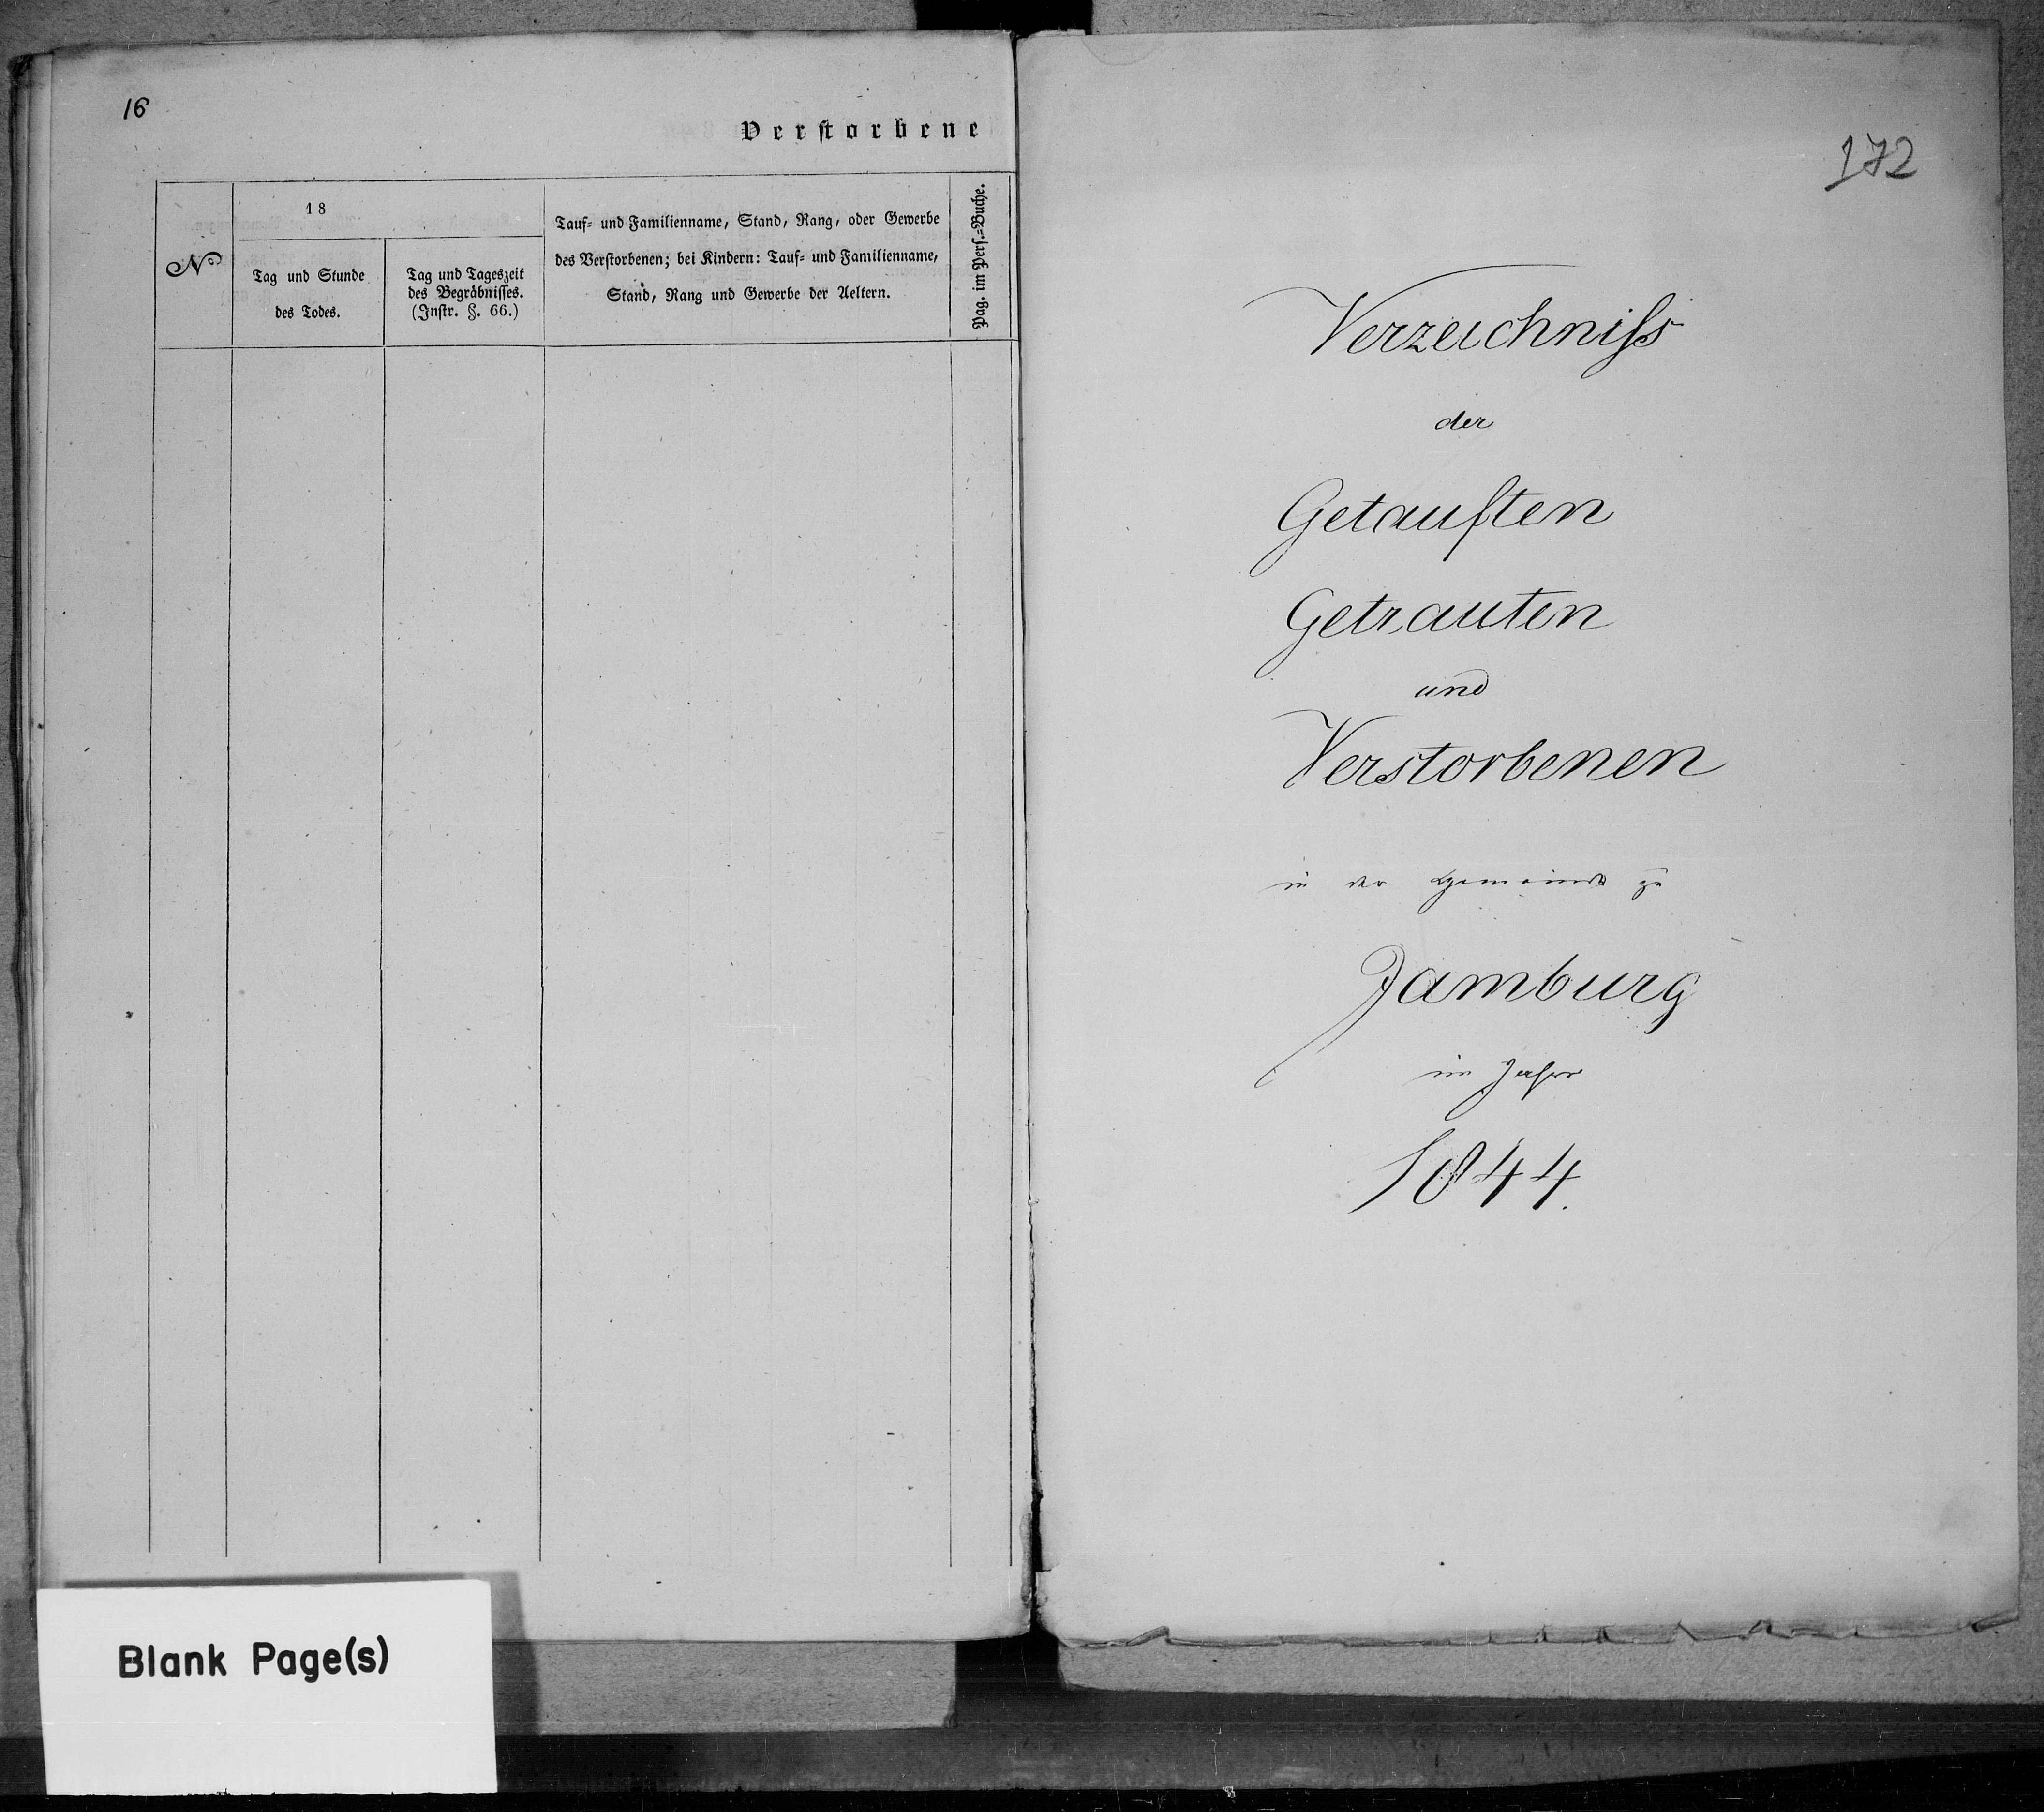 16
Verstorbene
№
18
Tag und Stunde
des Todes.
Tag und Tageszeit
des Begräbnisses.
(Instr. §. 66.)
Tauf- und Familienname, Stand, Rang, oder Gewerbe
des Verstorbenen; bei Kindern: Tauf- und Familienname,
Stand, Rang und Gewerbe der Aeltern.
Pag. im Pers.-Buche.
Blank Page(s)
172
Verzeichniſs
der
Getauften
Getrauten
und
Verstorbenen
in der Gemeinde zu
Jamburg
im Jahre
1844.